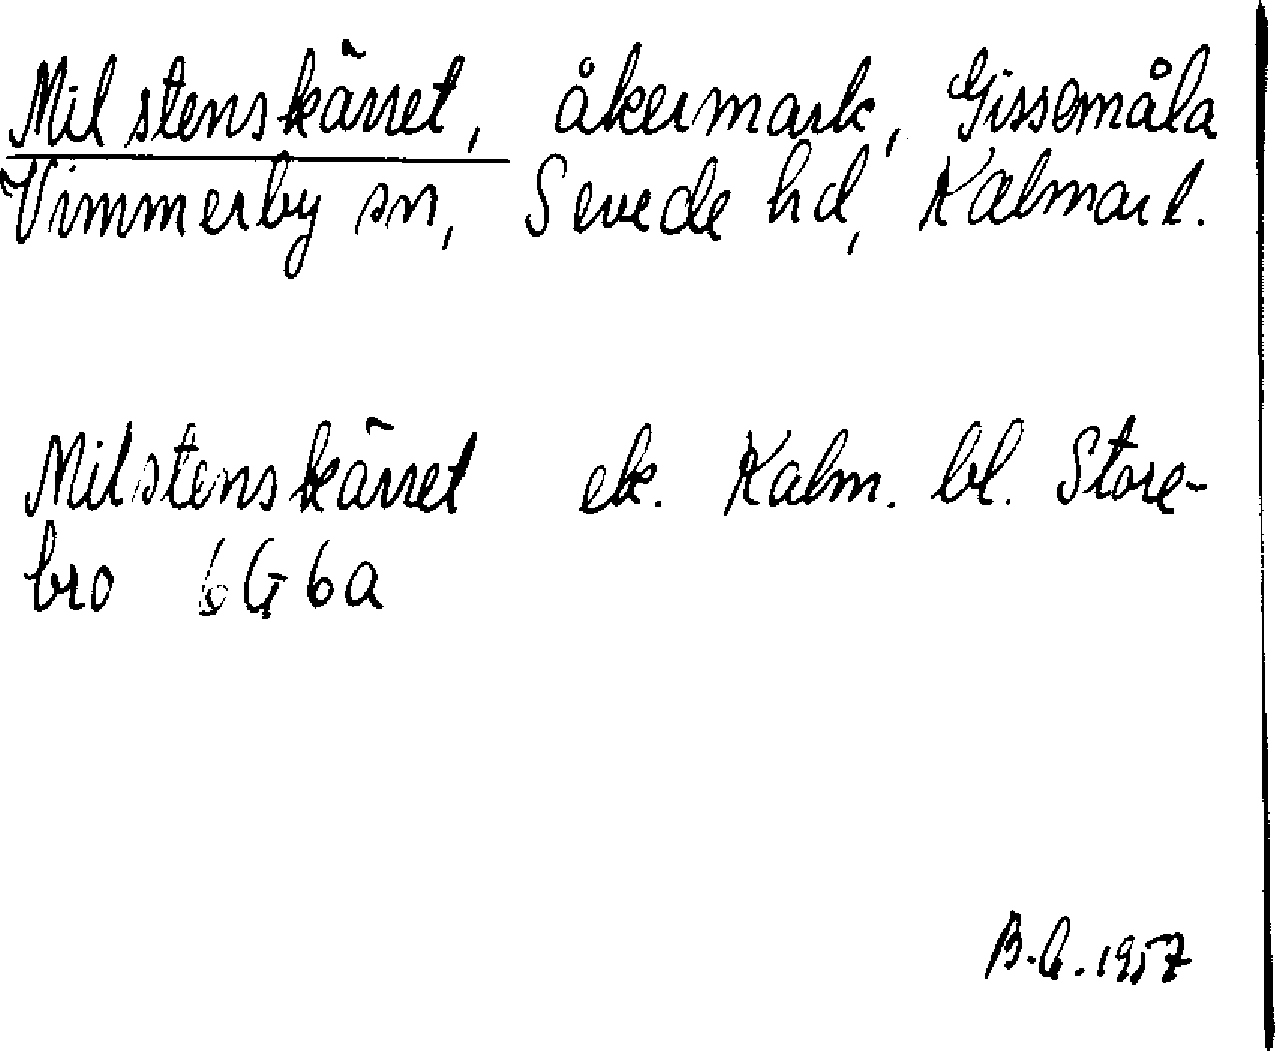 Milstenskärret, åkermark, Gissemåla
Vimmerby sn, Sevede hd, Kalmar l.
Milstenskärret ek. Kalm. bl. Store-
bro 6G6a
B.G. 1957